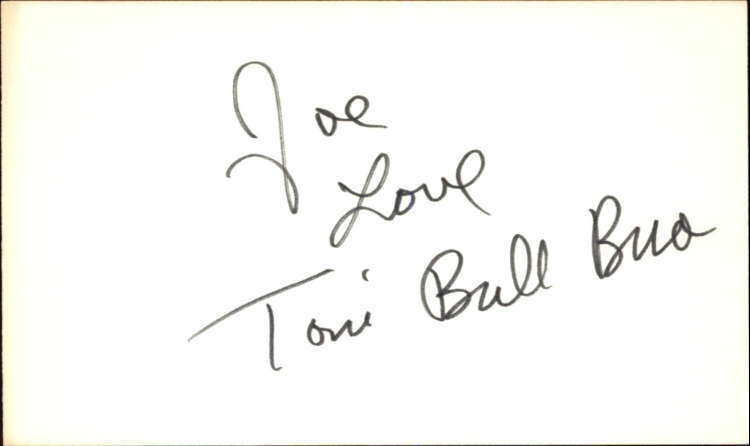 Joe
Love
Toni Bull Bua